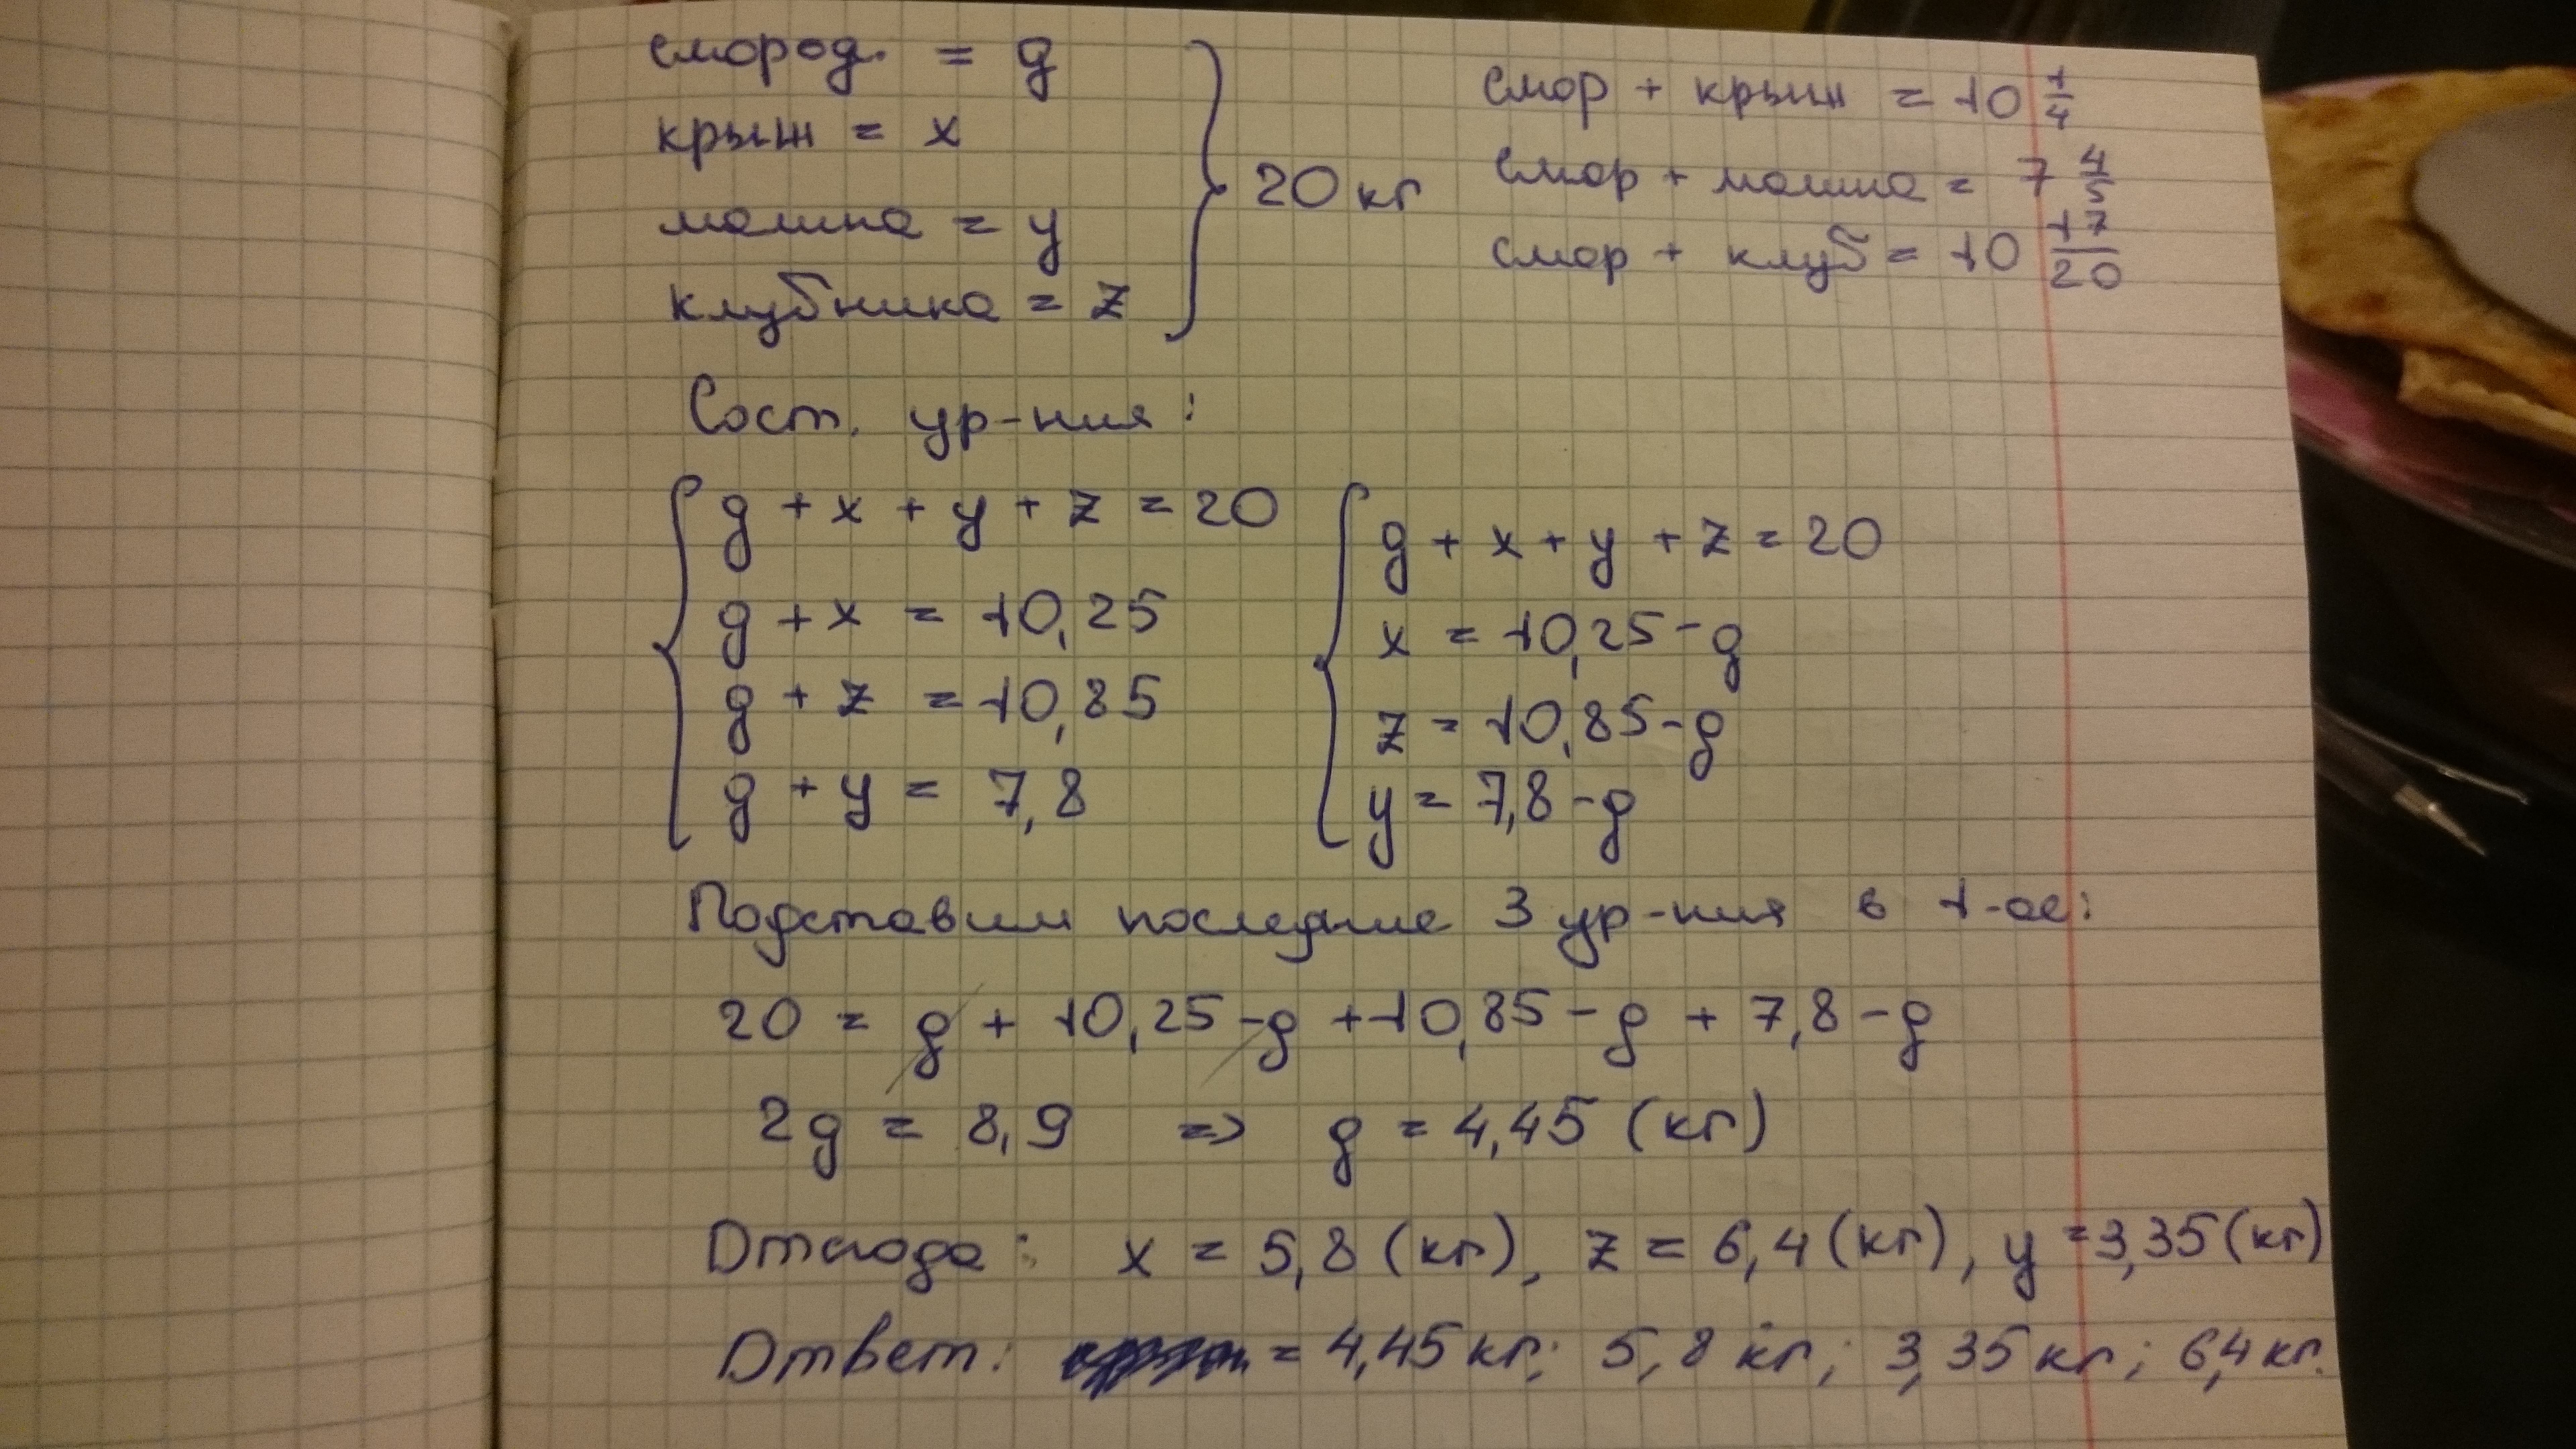 смород. = g
крыж = x
малина = y
клубника = z
20 кг
смор + крыж = 10 1/4
смор + малина = 7 4/5
смор + клуб = 10 17/20
Сост. ур-ния:
g + x + y + z = 20
g + x = 10,25
g + z = 10,85
g + y = 7,8
g + x + y + z = 20
x = 10,25 - g
z = 10,85 - g
y = 7,8 - g
Подставим последние 3 ур-ния в 1-ое:
20 = g + 10,25 - g + 10,85 - g + 7,8 - g
2g = 8,9 => g = 4,45 (кг)
Отсюда: x = 5,8 (кг), z = 6,4 (кг), y = 3,35 (кг)
Ответ: = 4,45 кг; 5,8 кг; 3,35 кг; 6,4 кг.